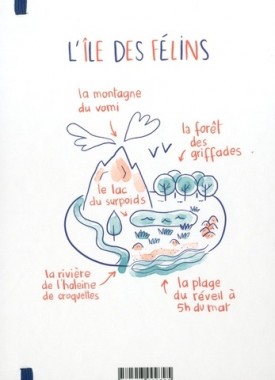 L'ÎLE DES FÉLINS
la montagne
du vomi
la forêt
des
griffades
le lac
du surpoids
la rivière
de l'haleine
de croquettes
la plage
du réveil à
5h du mat